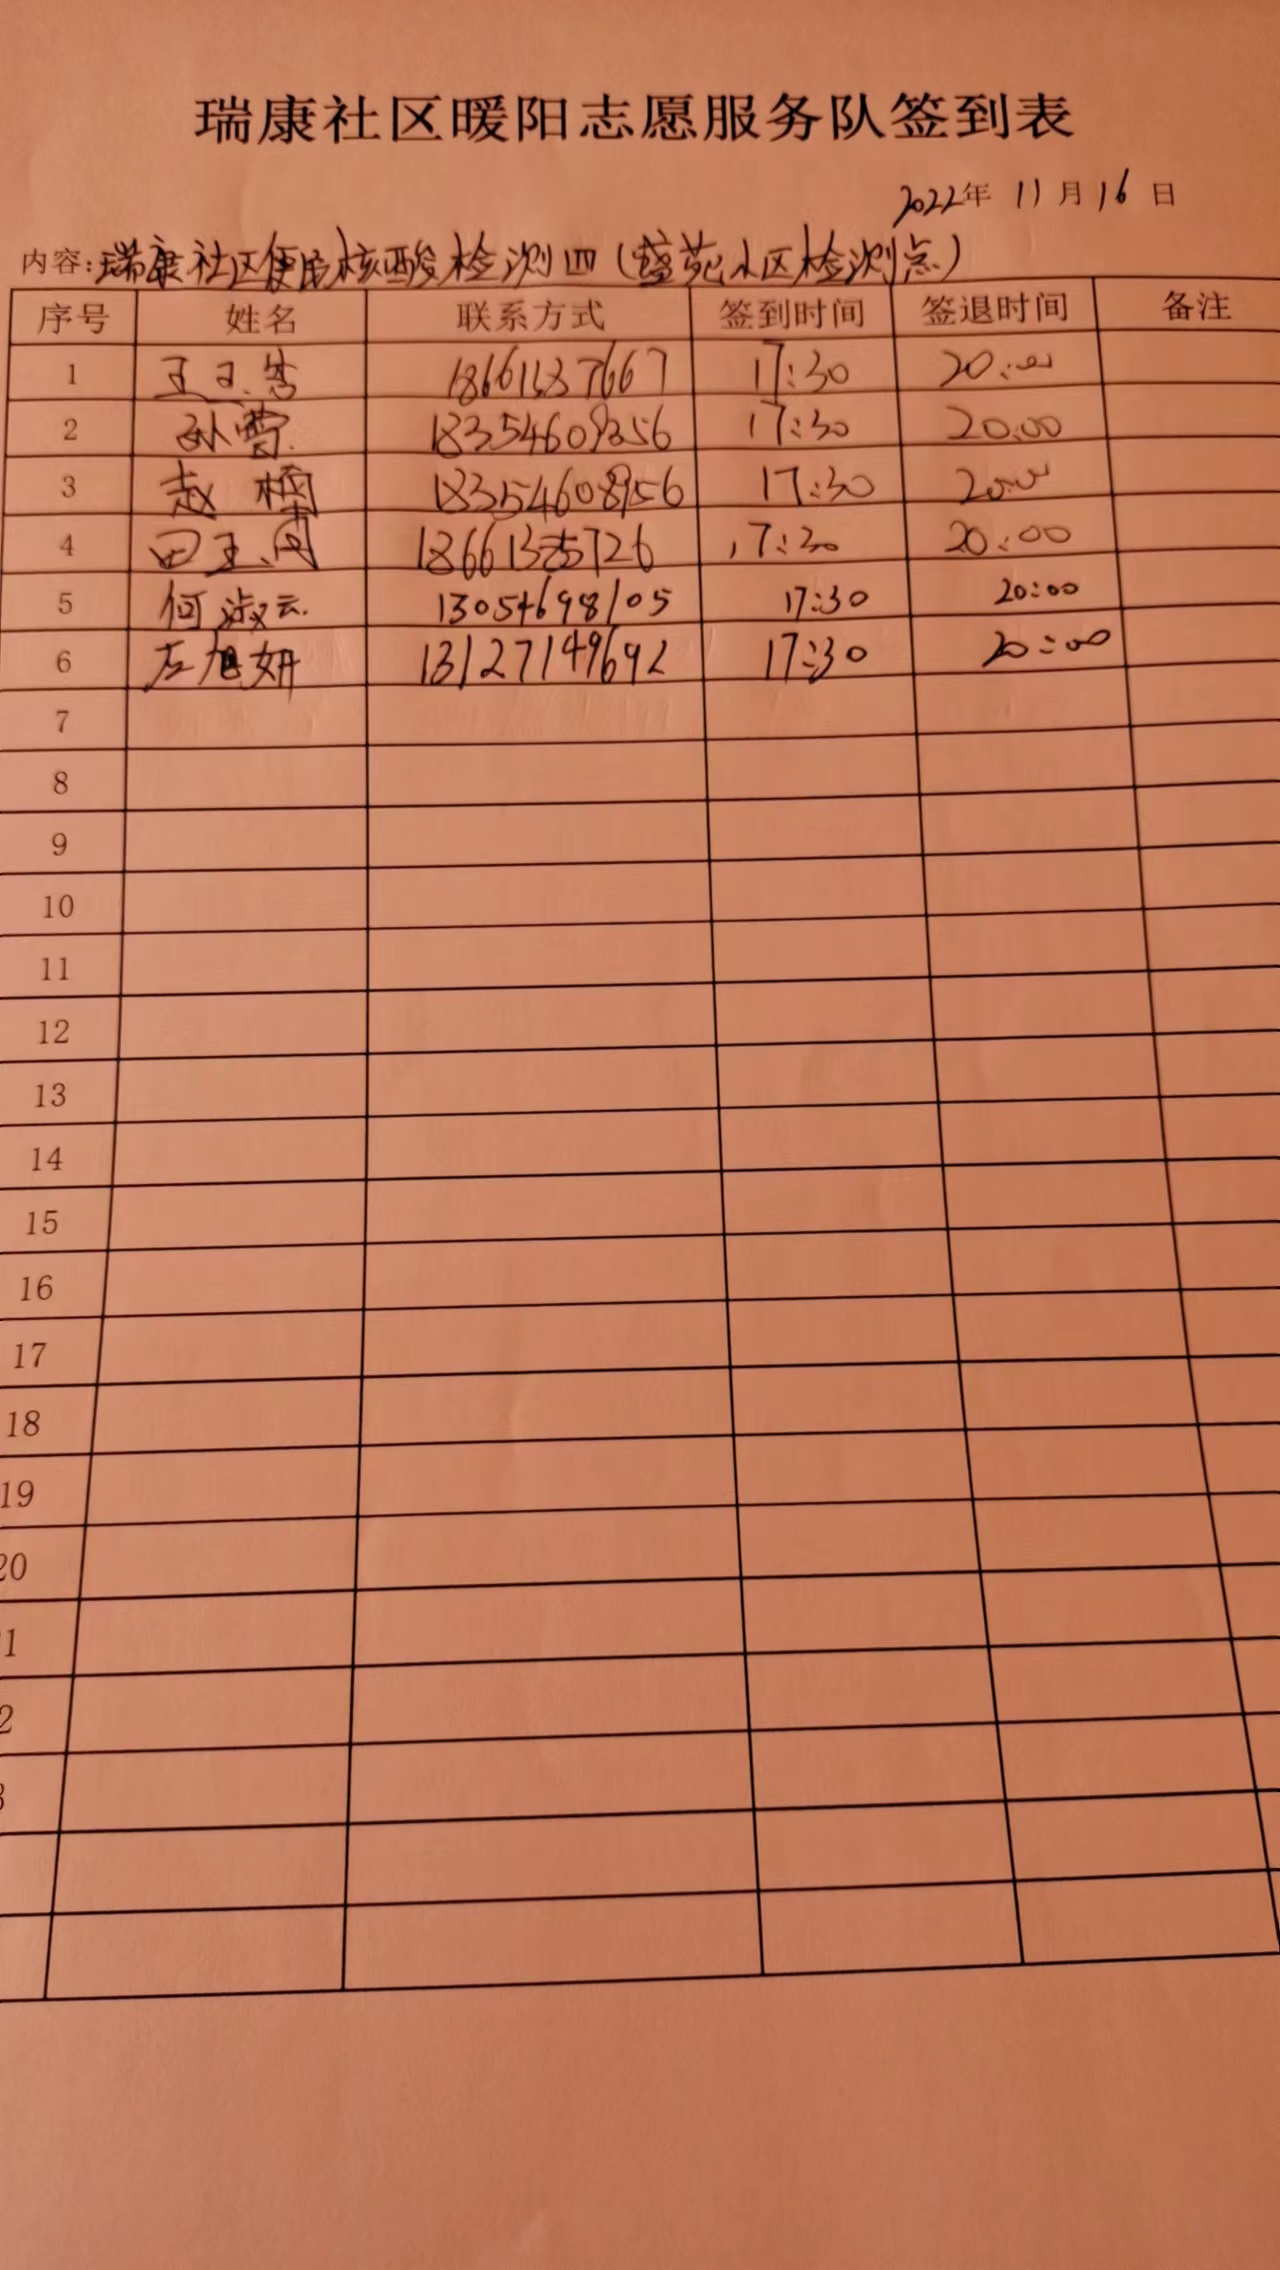 瑞康社区暖阳志愿服务队签到表
2022年 11月16日
内容:瑞康社区便民核酸检测四(盛苑小区检测点)
序号 姓名 联系方式 签到时间 签退时间 备注
1 17:30 20:00
2 孙雪 17:30 20:00
3 赵楠 18354608956 17:30 20:00
4 17:30 20:00
5 何淑云 13054698105 17:30 20:00
6 左旭妍 13127149692 17:30 20:00
7
8
9
10
11
12
13
14
15
16
17
18
19
20
1
2
3